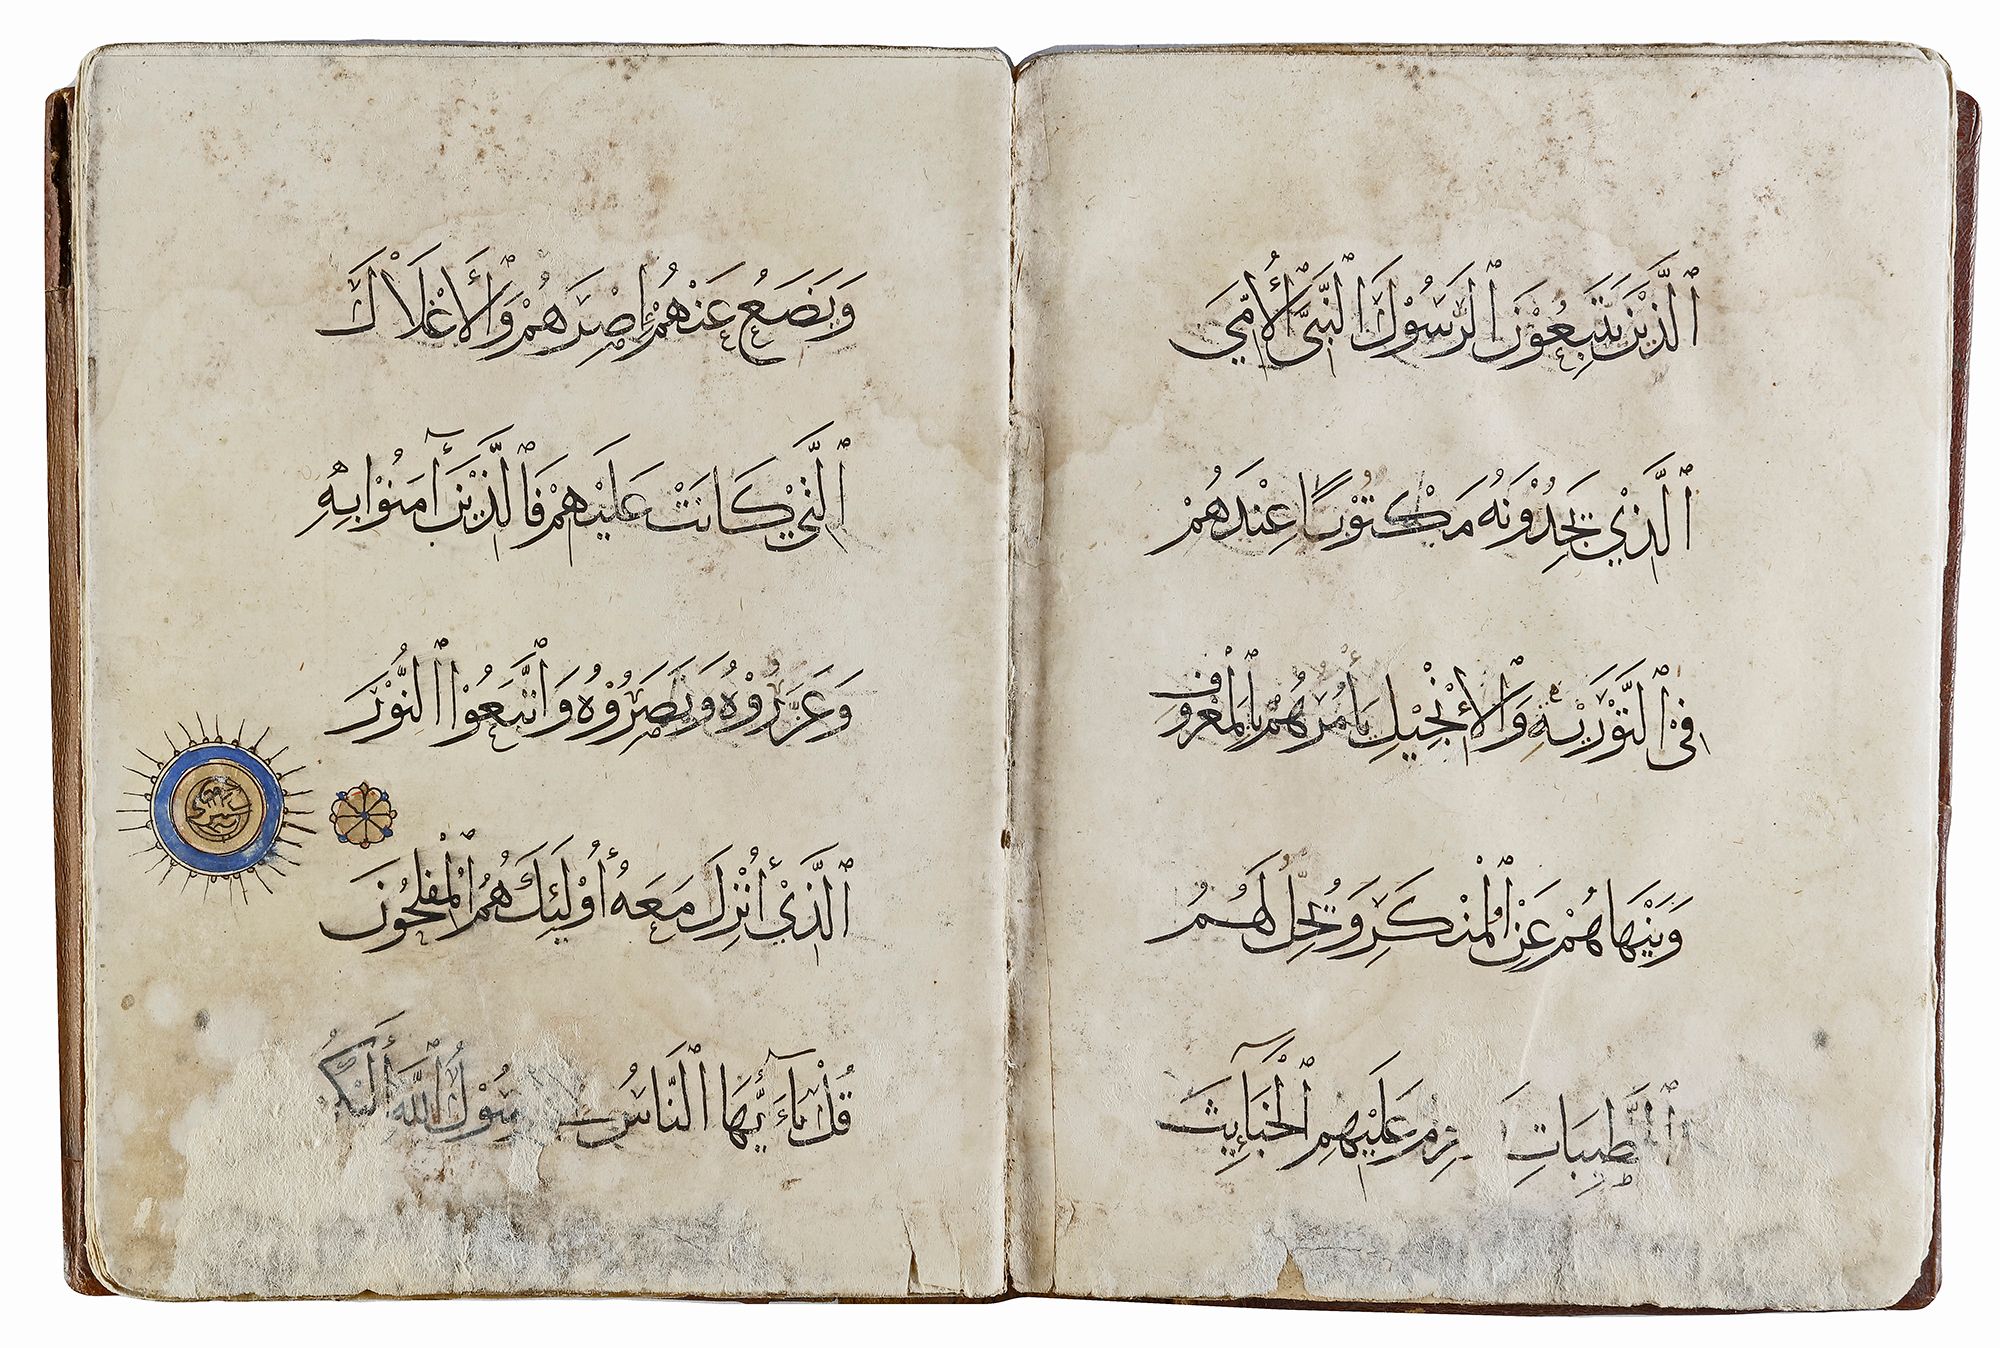 ٱلَّذِيْنَ يَتَّبِعُوْنَ ٱلرَّسُوْلَ ٱلنَّبِيَّ ٱلْأُمِّيَ
ٱلَّذِيْ يَجِدُوْنَهُ مَكْتُوْبًا عِنْدَهُمْ
فِي ٱلتَّوْرَيةِ وَٱلْإِنْجِيْلِ يَأْمُرُهُمْ بِٱلْمَعْرُوْفِ
وَيَنْهَاهُمْ عَنِ ٱلْمُنْكَرِ وَيُحِلُّ لَهُمُ
ٱلطَّيِبَاتِ عَلَيْهِمِ ٱلْخَبَآئِثَ
وَيَضَعُ عَنْهُمْ إِصْرَهُمْ وَٱلْأَغْلَالَ
ٱلَّتِيْ كَانَتْ عَلَيْهِمْ فَٱلَّذِيْنَ أٓمَنُوْا بِهِ
وَعَزَّرُوْهُ وَنَصَرُوْهُ وَٱتَّبَعُوْا ٱلنُّوْرَ
ٱلَّذِيْ أُنْزِلَ مَعَهُ أُوْلَئِكَ هُمُ ٱلْمُفْلِحُوْنَ
قُلْ يَآءَيُّهَا ٱلنَّاسُ رَسُوْلُ ٱللَّهِ إِلَيْكُمْ